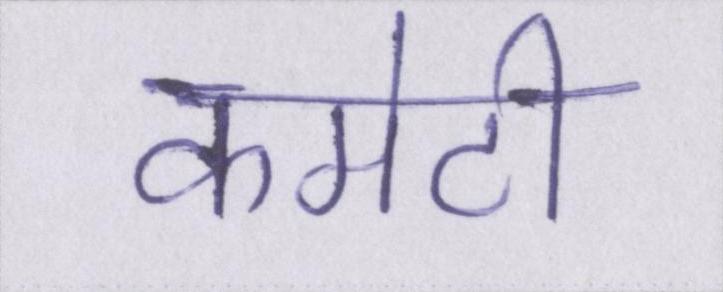 कमेटी